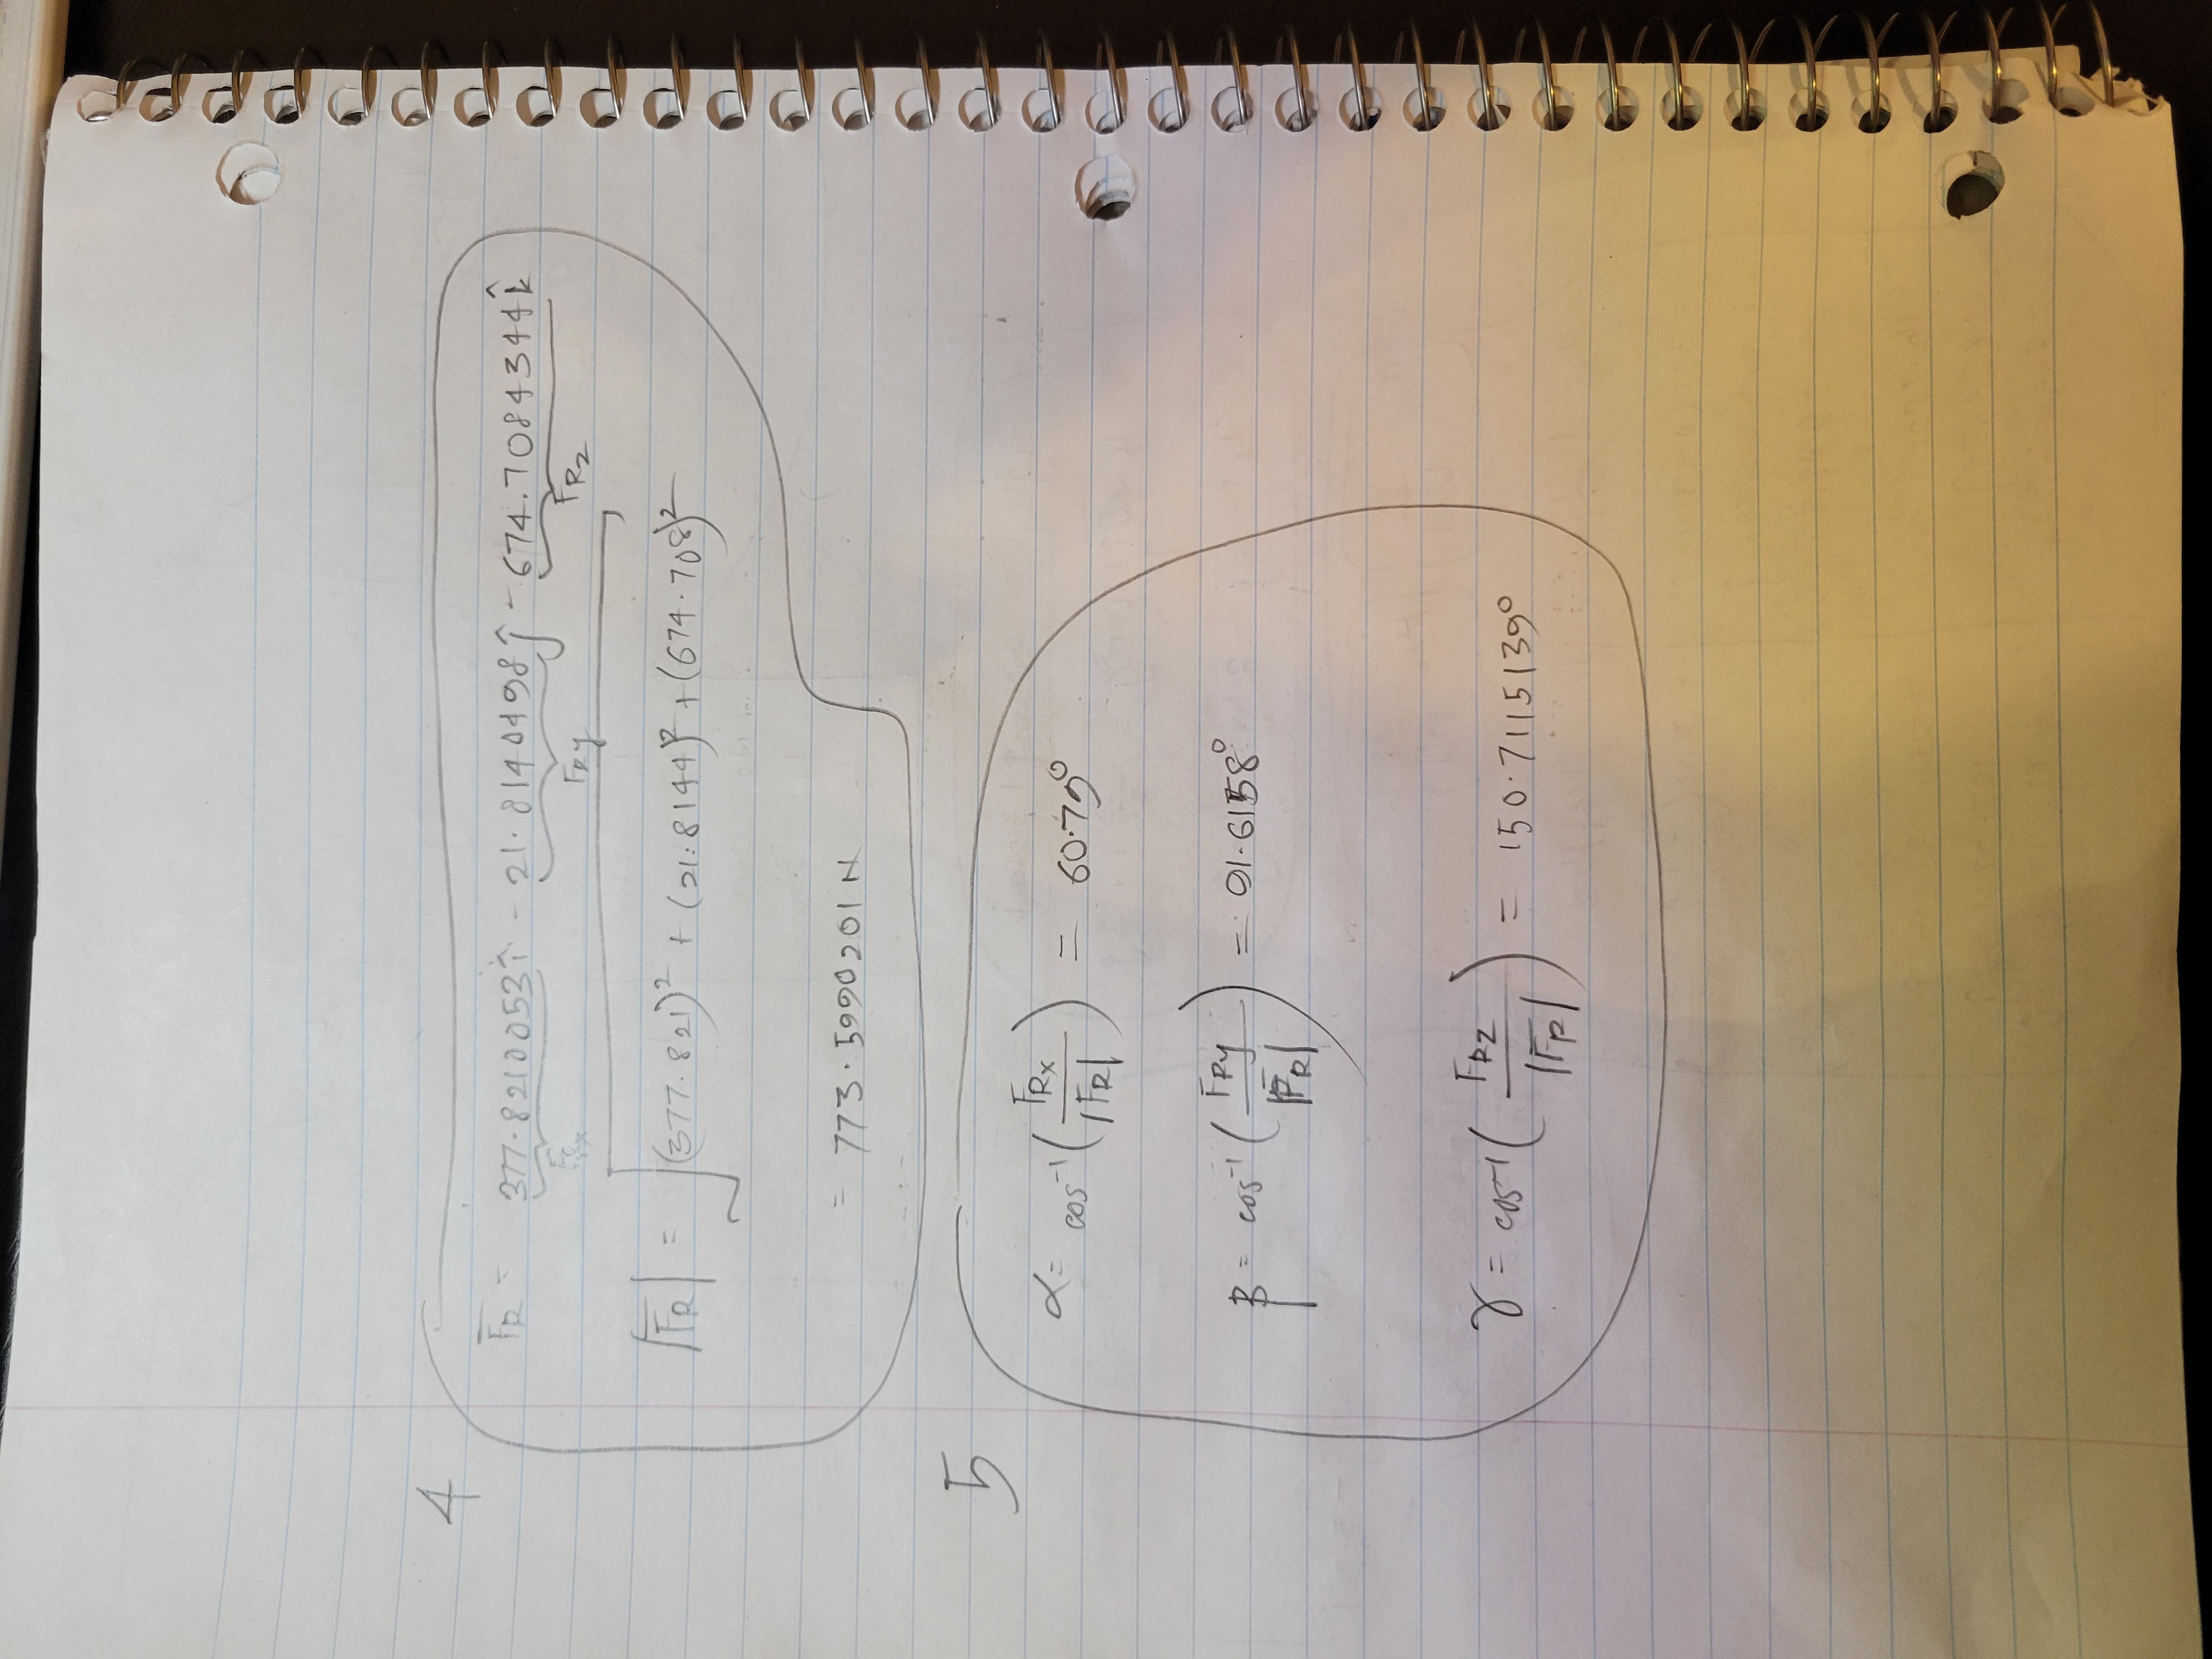 4
F̅R = 377.8210053î - 21.8140498ĵ - 674.7084344k̂
FRx FRy FRz
|F̅R| = √(377.821)² + (21.8144)² + (674.708)²
= 773.5990201 N
5
α = cos⁻¹(FRx/|FR|) = 60.79°
β = cos⁻¹(FRy/|F̅R|) = 91.6158°
γ = cos⁻¹(FRz/|F̅R|) = 150.7115139°